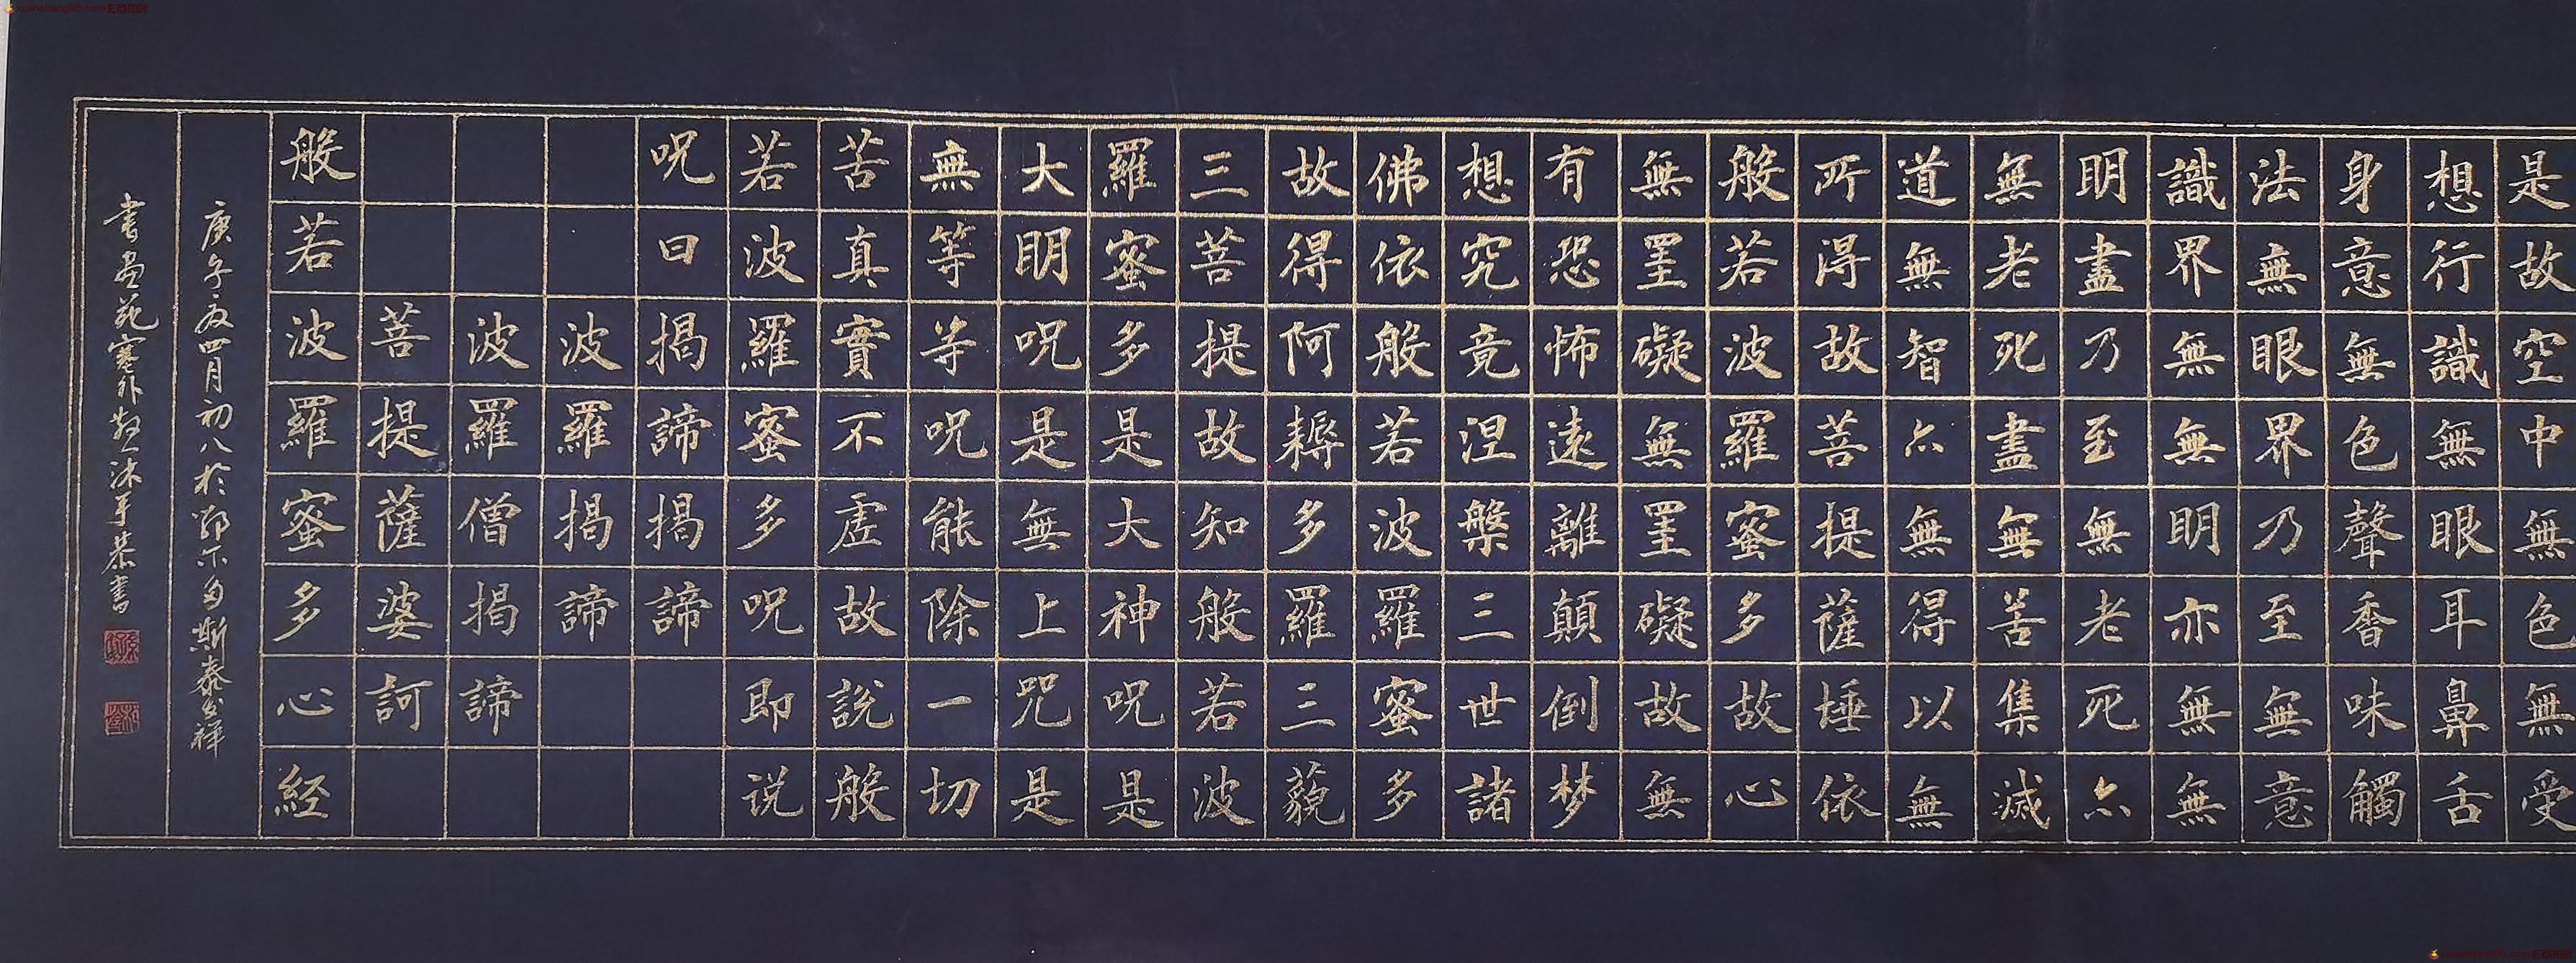 是故空中無色無受
想行識無眼耳鼻舌
身意無色聲香味觸
法無眼界乃至無意
識界無無明亦無無
明盡乃至無老死亦
無老死盡無苦集滅
道無智亦無得以無
所得故菩提埵依
般若波羅蜜多故心
無罣礙無罣礙故無
有恐怖遠離顛倒梦
想究竟涅槃三世諸
佛依般若波羅蜜多
故得阿耨多羅三藐
三菩提故知般若波
羅蜜多是大神呪是
大明呪是無上咒是
無等等呪能除一切
苦真實不虛故說般
若波羅蜜多呪即说
呪曰揭諦揭諦
波羅揭諦
波羅僧揭諦
菩提薩婆訶
般若波羅蜜多心経
庚子四月初八於鄂尔多斯泰祥
書畫苑塞外散一沐手恭書